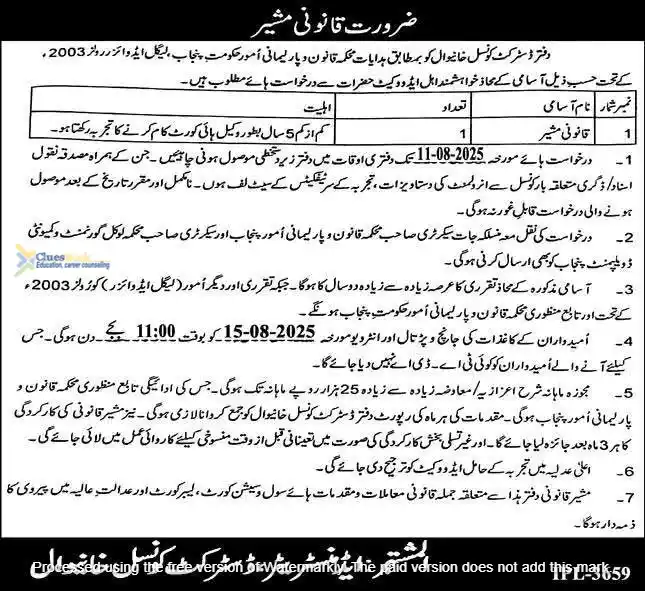 ضرورت قانونی مشیر
دفتر ڈسٹرکٹ کونسل خانیوال کو بمطابق ہدایات محکمہ قانون و پارلیمانی اُمور حکومت پنجاب، لیگل ایڈوائزر رولز 2003ء
کے تحت حسب ذیل آسامی کے محاذ خواہشمند اہل ایڈووکیٹ حضرات سے درخواست ہائے مطلوب ہیں۔
نمبر شمار نام آسامی تعداد اہلیت
1 قانونی مشیر 1 کم از کم 5 سال بطور وکیل ہائی کورٹ کام کرنے کا تجربہ رکھتا ہو۔
1۔ درخواست ہائے مورخہ 11-08-2025 تک دفتری اوقات میں دفتر زیر دستخطی موصول ہونی چاہئیں۔ جن کے ہمراہ مصدقہ نقول
اسناد/ڈگری متعلقہ بار کونسل سے انرولمنٹ کی دستاویزات، تجربہ کے سرٹیفکیٹس کے سیٹ لف ہوں۔ نامکمل اور مقررہ تاریخ کے بعد موصول
ہونے والی درخواست قابل غور نہ ہوگی۔
2۔ درخواست کی نقل معہ منسلکہ جات سیکرٹری صاحب محکمہ قانون و پارلیمانی اُمور پنجاب اور سیکرٹری صاحب محکمہ لوکل گورنمنٹ و کمیونٹی
ڈویلپمنٹ پنجاب کو بھی ارسال کرنی ہوگی۔
Education, career counseling
3۔ آسامی مذکورہ کے محاذ تقرری کا عرصہ زیادہ سے زیادہ دو سال کا ہوگا۔ جبکہ تقرری اور دیگر اُمور (لیگل ایڈوائزر) کو رولز 2003ء
کے تحت اور تابع منظوری محکمہ قانون و پارلیمانی اُمور حکومت پنجاب ہونگے۔
4۔ اُمیدواران کے کاغذات کی جانچ و پڑتال اور انٹرویو مورخہ 15-08-2025 کو بوقت 11:00 بجے دن ہوگی۔ جس
کیلئے آنے والے اُمیدواران کو کوئی ٹی اے۔ ڈی اے نہیں دیا جائے گا۔
5۔ مجوزہ ماہانہ شرح اعزازیہ/معاوضہ زیادہ سے زیادہ 25 ہزار روپے ماہانہ تک ہوگی۔ جس کی ادائیگی تابع منظوری محکمہ قانون و
پارلیمانی اُمور پنجاب ہوگی۔ مقدمات کی ہر ماہ کی رپورٹ دفتر ڈسٹرکٹ کونسل خانیوال کو جمع کروانا لازمی ہوگی۔ نیز مشیر قانونی کی کارکردگی
کا ہر 3 ماہ بعد جائزہ لیا جائے گا۔ اور غیر تسلی بخش کارکردگی کی صورت میں تعیناتی قبل از وقت منسوخی کیلئے کارروائی عمل میں لائی جائے گی۔
6۔ اعلیٰ عدلیہ میں تجربہ کے حامل ایڈووکیٹ کو ترجیح دی جائے گی۔
7۔ مشیر قانونی دفتر ہذا سے متعلقہ جملہ قانونی معاملات و مقدمات ہائے سول و سیشن کورٹ، لیبر کورٹ اور عدالت عالیہ میں پیروی کا
ذمہ دار ہوگا۔
المشتہر: ایڈمنسٹریٹر ڈسٹرکٹ کونسل خانیوال
Processed using the free version of Watermarkly. The paid version does not add this mark.
IPL-3659